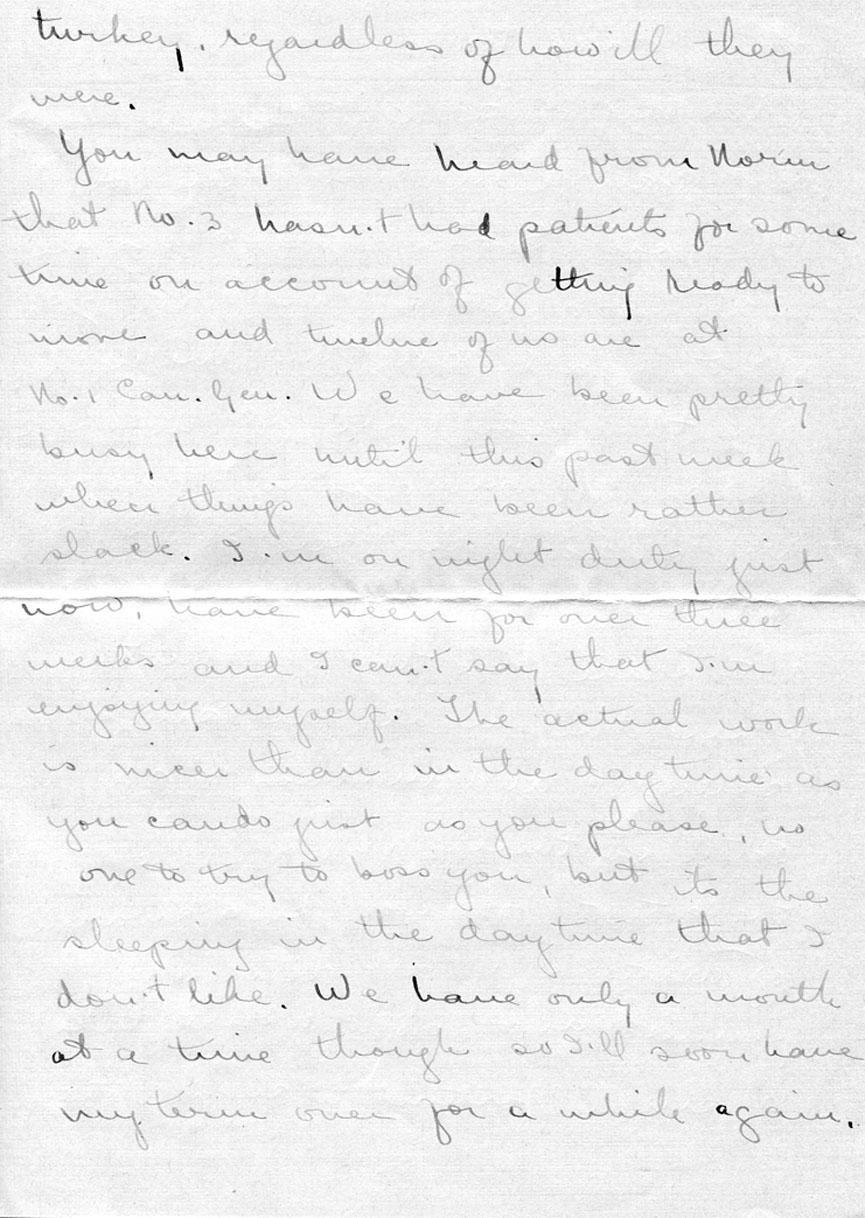 turkey, regardless of how ill they
were.
You may have heard from Norm
that No. 3 hasn't had patients for some
time on account of getting ready to
move and twelve of us are at
No. 1 Can. Gen. We have been pretty
busy here until this past week
when things have been rather
slack. I'm on night duty just
now, have been for over three
weeks and I can't say that I'm
enjoying myself. The actual work
is nicer than in the day time as
you can do just as you please, no
one to try to boss you, but its the
sleeping in the day time that I
don't like. We have only a month
at a time though so I'll soon have
my term over for a while again.